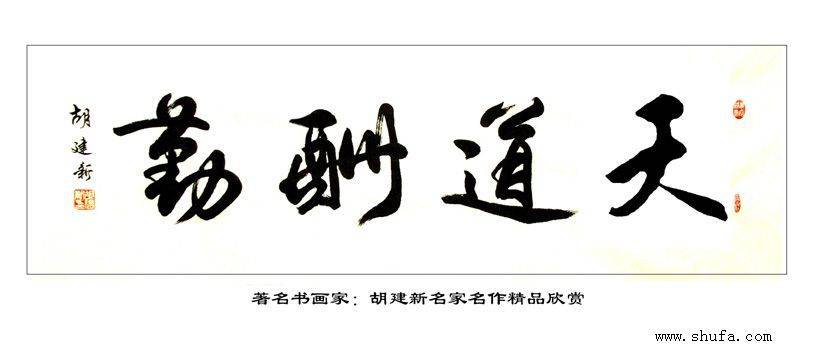 天道酬勤
胡建新
著名书画家：胡建新名家名作精品欣赏
www.shufa.com